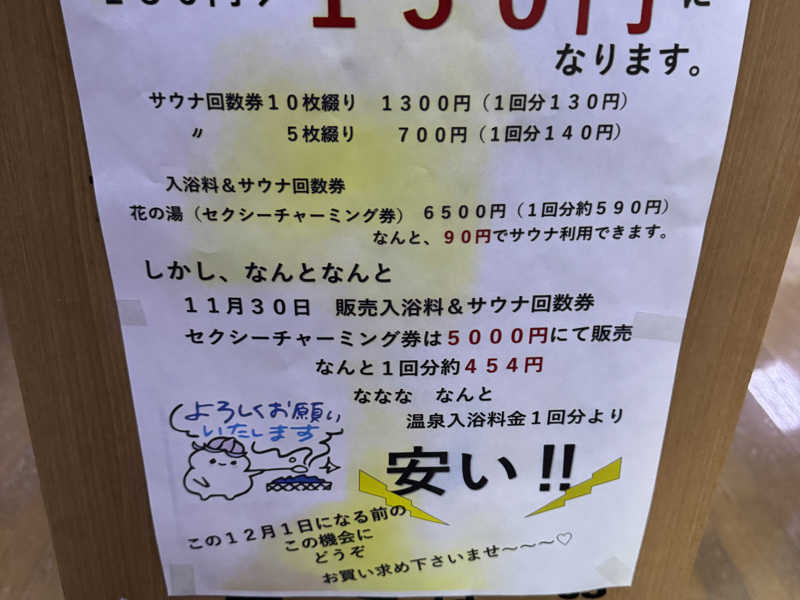 １５０円に
なります。
サウナ回数券１０枚綴り　１３００円（１回分１３０円）
〃　５枚綴り　７００円（１回分１４０円）
入浴料＆サウナ回数券
花の湯（セクシーチャーミング券）　６５００円（１回分約５９０円）
なんと、９０円でサウナ利用できます。
しかし、なんとなんと
１１月３０日　販売入浴料＆サウナ回数券
セクシーチャーミング券は５０００円にて販売
なんと１回分約４５４円
ななな　なんと
温泉入浴料金１回分より
安い‼
よろしくお願い
いたします
この１２月１日になる前の
この機会に
どうぞ
お買い求め下さいませ～～～♡